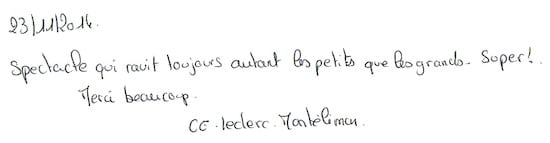 23/11/2014.
Spectacle qui ravit toujours autant les petits que les grands. Super!
Merci beaucoup.
CE. leclerc. Montélimar.